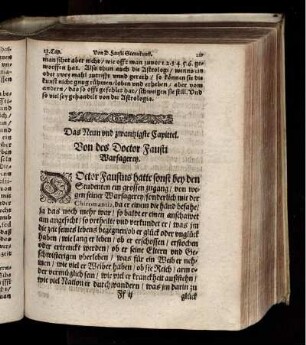 15. Cap. Von D. Fausti Sternkunst. 227
man sihet aber nicht / wie offt man zuvor 1. 2. 3. 4. 5. 6. ge-
worffen hat. Also thun auch die Astrologi / wenns ein
oder zwey mahl zutrifft vnnd gerath / so können sie die
kunst nicht gnug rühmen / loben vnd erheben / aber vom
andern / das so offt gefehlet hat / schweigen sie still. Vnd
so viel sey gehandelt von der Astrologie.
Das Neun vnd zwantzigste Capittel.
Von des Doctor Fausti
Warsagerey.
DOctor Faustus hatte sonst bey den
Studenten ein grossen zugang / von we-
gen seiner Warsagerey / sonderlich mit der
Chiromantia, da er einem die Händ besahe /
ja das noch mehr war / so baldt er einen anschawet
vnd verkundet er / was jm
die zeit seines lebens begegnen / ob er glück oder vnglück
haben / wie lang er leben / ob er erschossen / erstochen
oder ertrenckt werden / ob er seine Eltern vnd Ge-
schwistrigen vberleben / was für ein Weib er neh-
men / wie viel er Weiber haben / ob sie Reich / arm /
der vermüglich sein / wie viel er kranckheit außstehn /
wie viel Nation er durchwandern / was jm darin zu
Ff ij glück